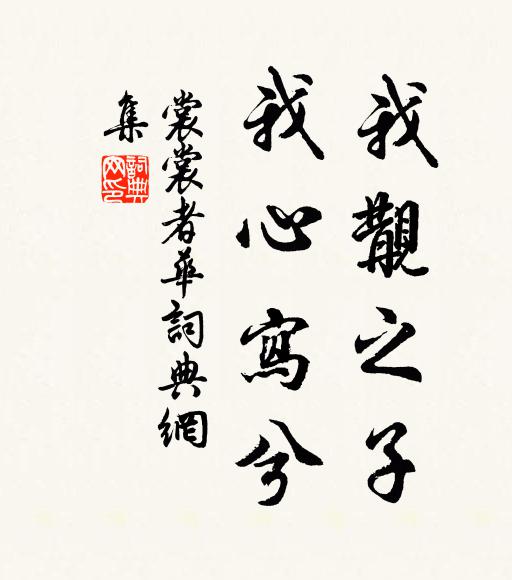 我覯之子
我心寫兮
裳裳者華詞典網
集
詞典
网印